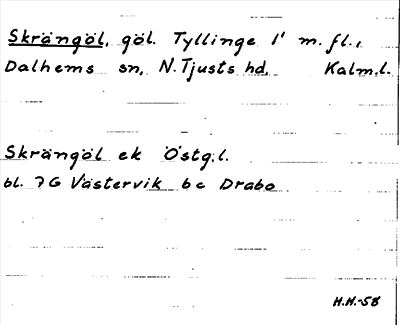 Skrängöl, göl. Tyllinge 1¹ m.fl.,
Dalhems sn, N.Tjusts hd, Kalm.l.
Skrängöl ek Östg.l.
bl. 7G Västervik bc Drabo
H.H.-58